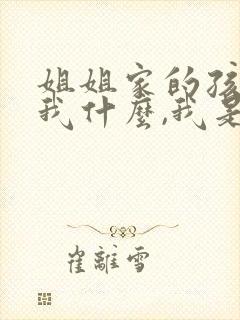 姐姐家的孩
我什麼,我是
崔離雪